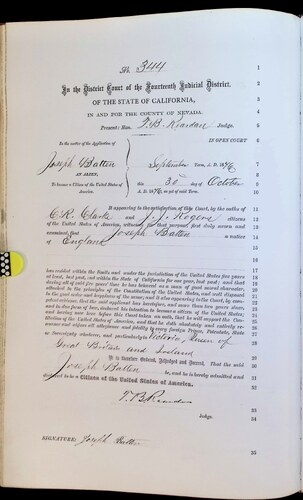 No 344
In the District Court of the Fourteenth Judicial District,
OF THE STATE OF CALIFORNIA,
IN AND FOR THE COUNTY OF NEVADA.
Present: Hon. T. B. Reardan Judge.
In the matter of the Application of
IN OPEN COURT
Joseph Batten
September Term, A. D. 1876
AN ALIEN,
To become a Citizen of the United States of America.
this 30 day of October
A. D. 1876 as yet of said Term.
It appearing to the satisfaction of this Court, by the oaths of
C. R. Clarke and J. J. Rogers citizens
of the United States of America, witnesses for that purpose first duly sworn and
examined, that Joseph Batten a native
of England
has resided within the limits and under the jurisdiction of the United States five years
at least, last past, and within the State of California for one year, last past; and that
during all of said five years' time he has behaved as a man of good moral character,
attached to the principles of the Constitution of the United States, and well disposed
to the good order and happiness of the same; and it also appearing to the Court, by
competent evidence, that the said applicant has heretofore, and more than two years since,
and in due form of law, declared his intention to become a citizen of the United States,
and having now here before this Court taken an oath, that he will support the Constitution
of the United States of America, and that he doth absolutely and entirely
renounce and abjure all allegiance and fidelity to every foreign Prince, Potentate, State
or Sovereignty whatever, and particularly to Victoria Queen of
Great Britain and Ireland
It is therefore Ordered, Adjudged and Decreed, That the said
Joseph Batten be, and he is hereby admitted and
declared to be a Citizen of the United States of America.
T. B. Reardan
Judge.
SIGNATURE: Joseph Batten
1
2
3
4
5
6
7
8
9
10
11
12
13
14
15
16
17
18
19
20
21
22
23
24
25
26
27
28
29
30
31
32
33
34
35